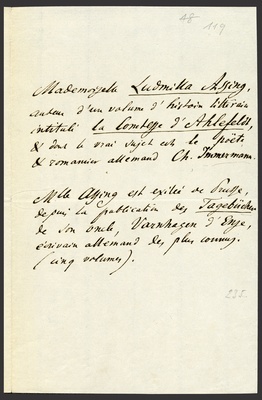 48
119
Mademoiselle Ludmilla Assing,
auteur d'un volume d'histoire littéraire
intitulé la Comtesse d'Ahlefeldt,
& dont le vrai sujet est le poëte
& romancier allemand Ch. Immermann.
Mlle Assing est exilée de Prusse,
depuis la publication des Tagebücher
de son oncle, Varnhagen d'Ense,
écrivain allemand des plus connus.
(cinq volumes).
225.